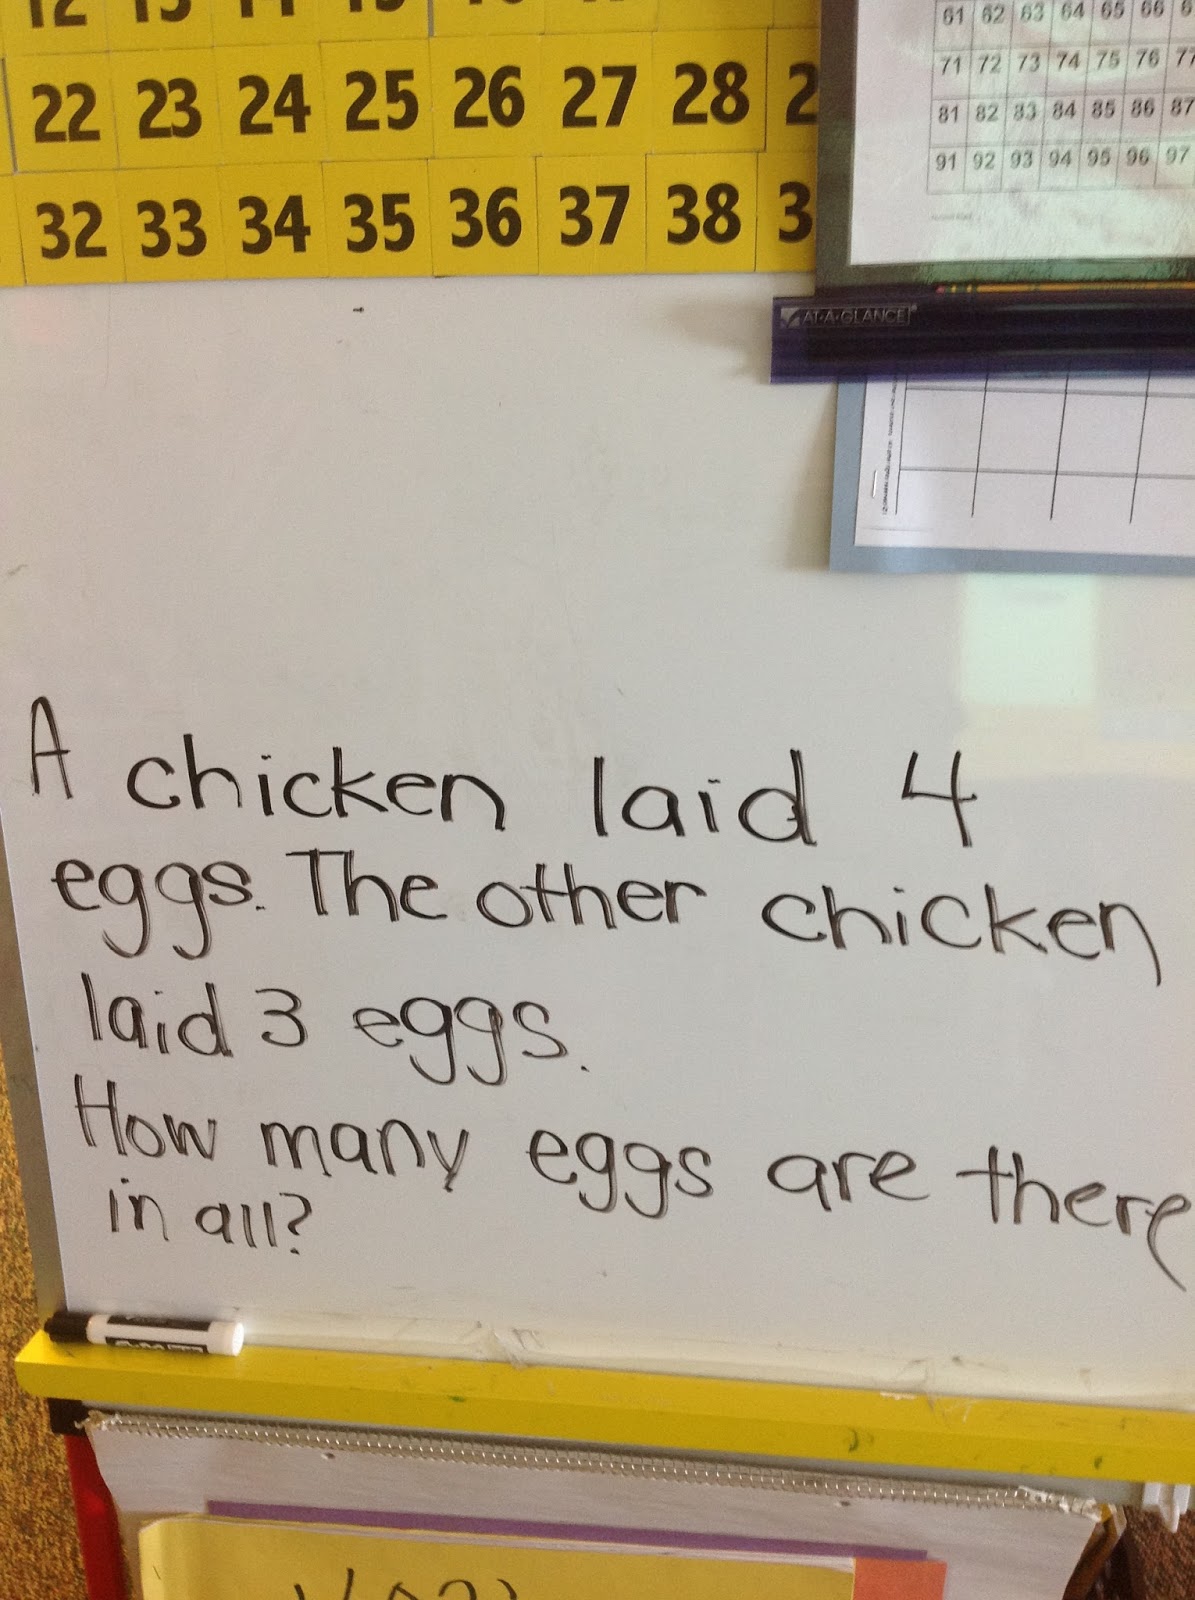 22 23 24 25 26 27 28
32 33 34 35 36 37 38
61 62 63 64 65 66
71 72 73 74 75 76 77
81 82 83 84 85 86 87
91 92 93 94 95 96 97
AT-A-GLANCE
A chicken laid 4
eggs. The other chicken
laid 3 eggs.
How many eggs are there
in all?